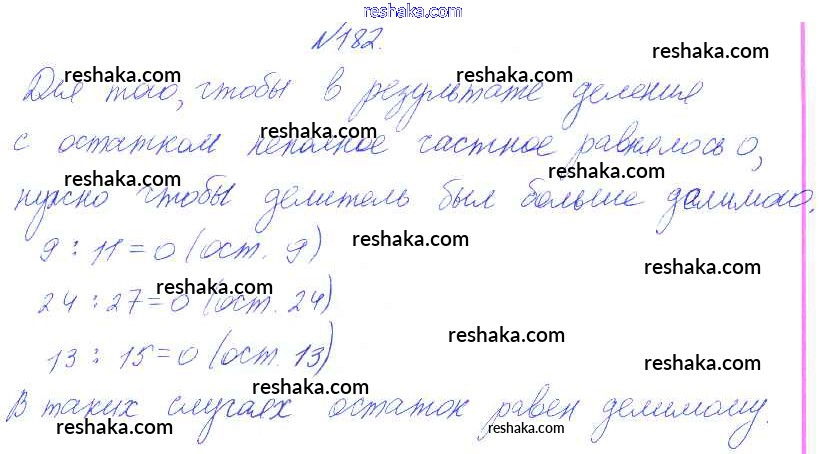 reshaka.com
№182.
reshaka.com
reshaka.com reshaka.com
Для того, чтобы в результате деления
reshaka.com reshaka.com
с остатком неполное частное равнялось 0,
reshaka.com reshaka.com
нужно чтобы делитель был больше делимого.
reshaka.com
9 : 11 = 0 (ост. 9)
reshaka.com
reshaka.com
24 : 27 = 0 (ост. 24)
reshaka.com
13 : 15 = 0 (ост. 13)
reshaka.com
reshaka.com
В таких случаях остаток равен делимому.
reshaka.com reshaka.com